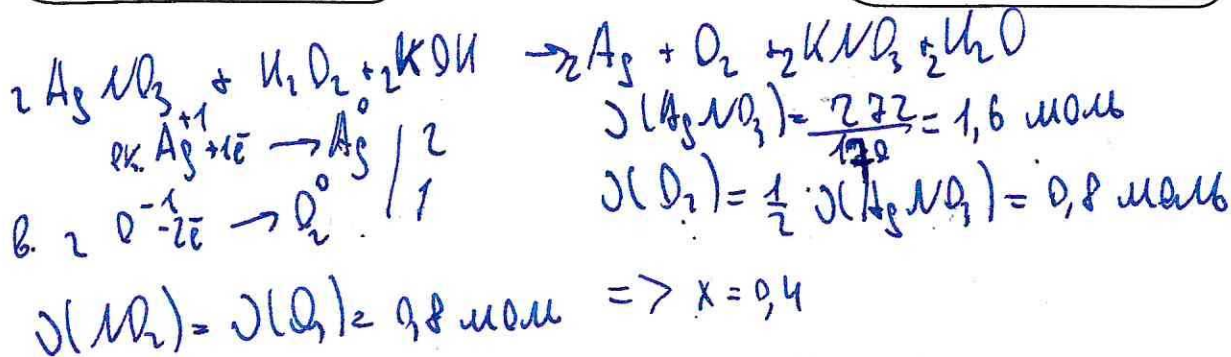 2AgNO₃ + H₂O₂ + 2KOH → 2Ag + O₂ + 2KNO₃ + 2H₂O
ок. Ag⁺¹ +1ē → Ag⁰ | 2
в. 2 O⁻¹ -2ē → O₂⁰ | 1
ν(AgNO₃) = 272/170 = 1,6 моль
ν(O₂) = 1/2 · ν(AgNO₃) = 0,8 моль
ν(NO₂) = ν(O₂) = 0,8 моль => x = 0,4